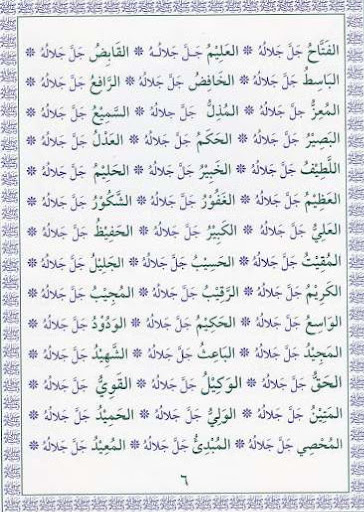 الفَتَّاحُ جَلَّ جَلَالُهُ ❊ العَلِيْمُ جَلَّ جَلَالُهُ ❊ القَابِضُ جَلَّ جَلَالُهُ ❊
البَاسِطُ جَلَّ جَلَالُهُ ❊ الخَافِضُ جَلَّ جَلَالُهُ ❊ الرَّافِعُ جَلَّ جَلَالُهُ ❊
المُعِزُّ جَلَّ جَلَالُهُ ❊ المُذِلُّ جَلَّ جَلَالُهُ ❊ السَّمِيْعُ جَلَّ جَلَالُهُ ❊
البَصِيْرُ جَلَّ جَلَالُهُ ❊ الحَكَمُ جَلَّ جَلَالُهُ ❊ العَدْلُ جَلَّ جَلَالُهُ ❊
اللَّطِيْفُ جَلَّ جَلَالُهُ ❊ الخَبِيْرُ جَلَّ جَلَالُهُ ❊ الحَلِيْمُ جَلَّ جَلَالُهُ ❊
العَظِيْمُ جَلَّ جَلَالُهُ ❊ الغَفُوْرُ جَلَّ جَلَالُهُ ❊ الشَّكُوْرُ جَلَّ جَلَالُهُ ❊
العَلِيُّ جَلَّ جَلَالُهُ ❊ الكَبِيْرُ جَلَّ جَلَالُهُ ❊ الحَفِيْظُ جَلَّ جَلَالُهُ ❊
المُقِيْتُ جَلَّ جَلَالُهُ ❊ الحَسِيْبُ جَلَّ جَلَالُهُ ❊ الجَلِيْلُ جَلَّ جَلَالُهُ ❊
الكَرِيْمُ جَلَّ جَلَالُهُ ❊ الرَّقِيْبُ جَلَّ جَلَالُهُ ❊ المُجِيْبُ جَلَّ جَلَالُهُ ❊
الوَاسِعُ جَلَّ جَلَالُهُ ❊ الحَكِيْمُ جَلَّ جَلَالُهُ ❊ الوَدُوْدُ جَلَّ جَلَالُهُ ❊
المَجِيْدُ جَلَّ جَلَالُهُ ❊ البَاعِثُ جَلَّ جَلَالُهُ ❊ الشَّهِيْدُ جَلَّ جَلَالُهُ ❊
الحَقُّ جَلَّ جَلَالُهُ ❊ الوَكِيْلُ جَلَّ جَلَالُهُ ❊ القَوِيُّ جَلَّ جَلَالُهُ ❊
المَتِيْنُ جَلَّ جَلَالُهُ ❊ الوَلِيُّ جَلَّ جَلَالُهُ ❊ الحَمِيْدُ جَلَّ جَلَالُهُ ❊
المُحْصِي جَلَّ جَلَالُهُ ❊ المُبْدِئُ جَلَّ جَلَالُهُ ❊ المُعِيْدُ جَلَّ جَلَالُهُ ❊
٦